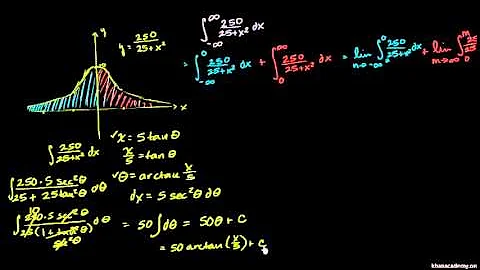 y = 250/25+x²
y
10
x
∫_{-∞}^{∞} 250/25+x² dx
= ∫_{-∞}^{0} 250/25+x² dx + ∫_{0}^{∞} 250/25+x² dx = lim_{n→-∞} ∫_{n}^{0} 250/25+x² dx + lim_{m→∞} ∫_{0}^{m} 25
∫ 250/25+x² dx
✓ x = 5 tan θ
x/5 = tan θ
✓ θ = arctan x/5
dx = 5 sec² θ dθ
∫ 250 · 5 sec² θ / 25 + 25 tan² θ dθ
∫ 250 · 5 sec² θ / 25(1 + tan² θ) dθ = 50 ∫ dθ = 50θ + C
10
sec² θ
= 50 arctan (x/5) + C
khanacademy.org